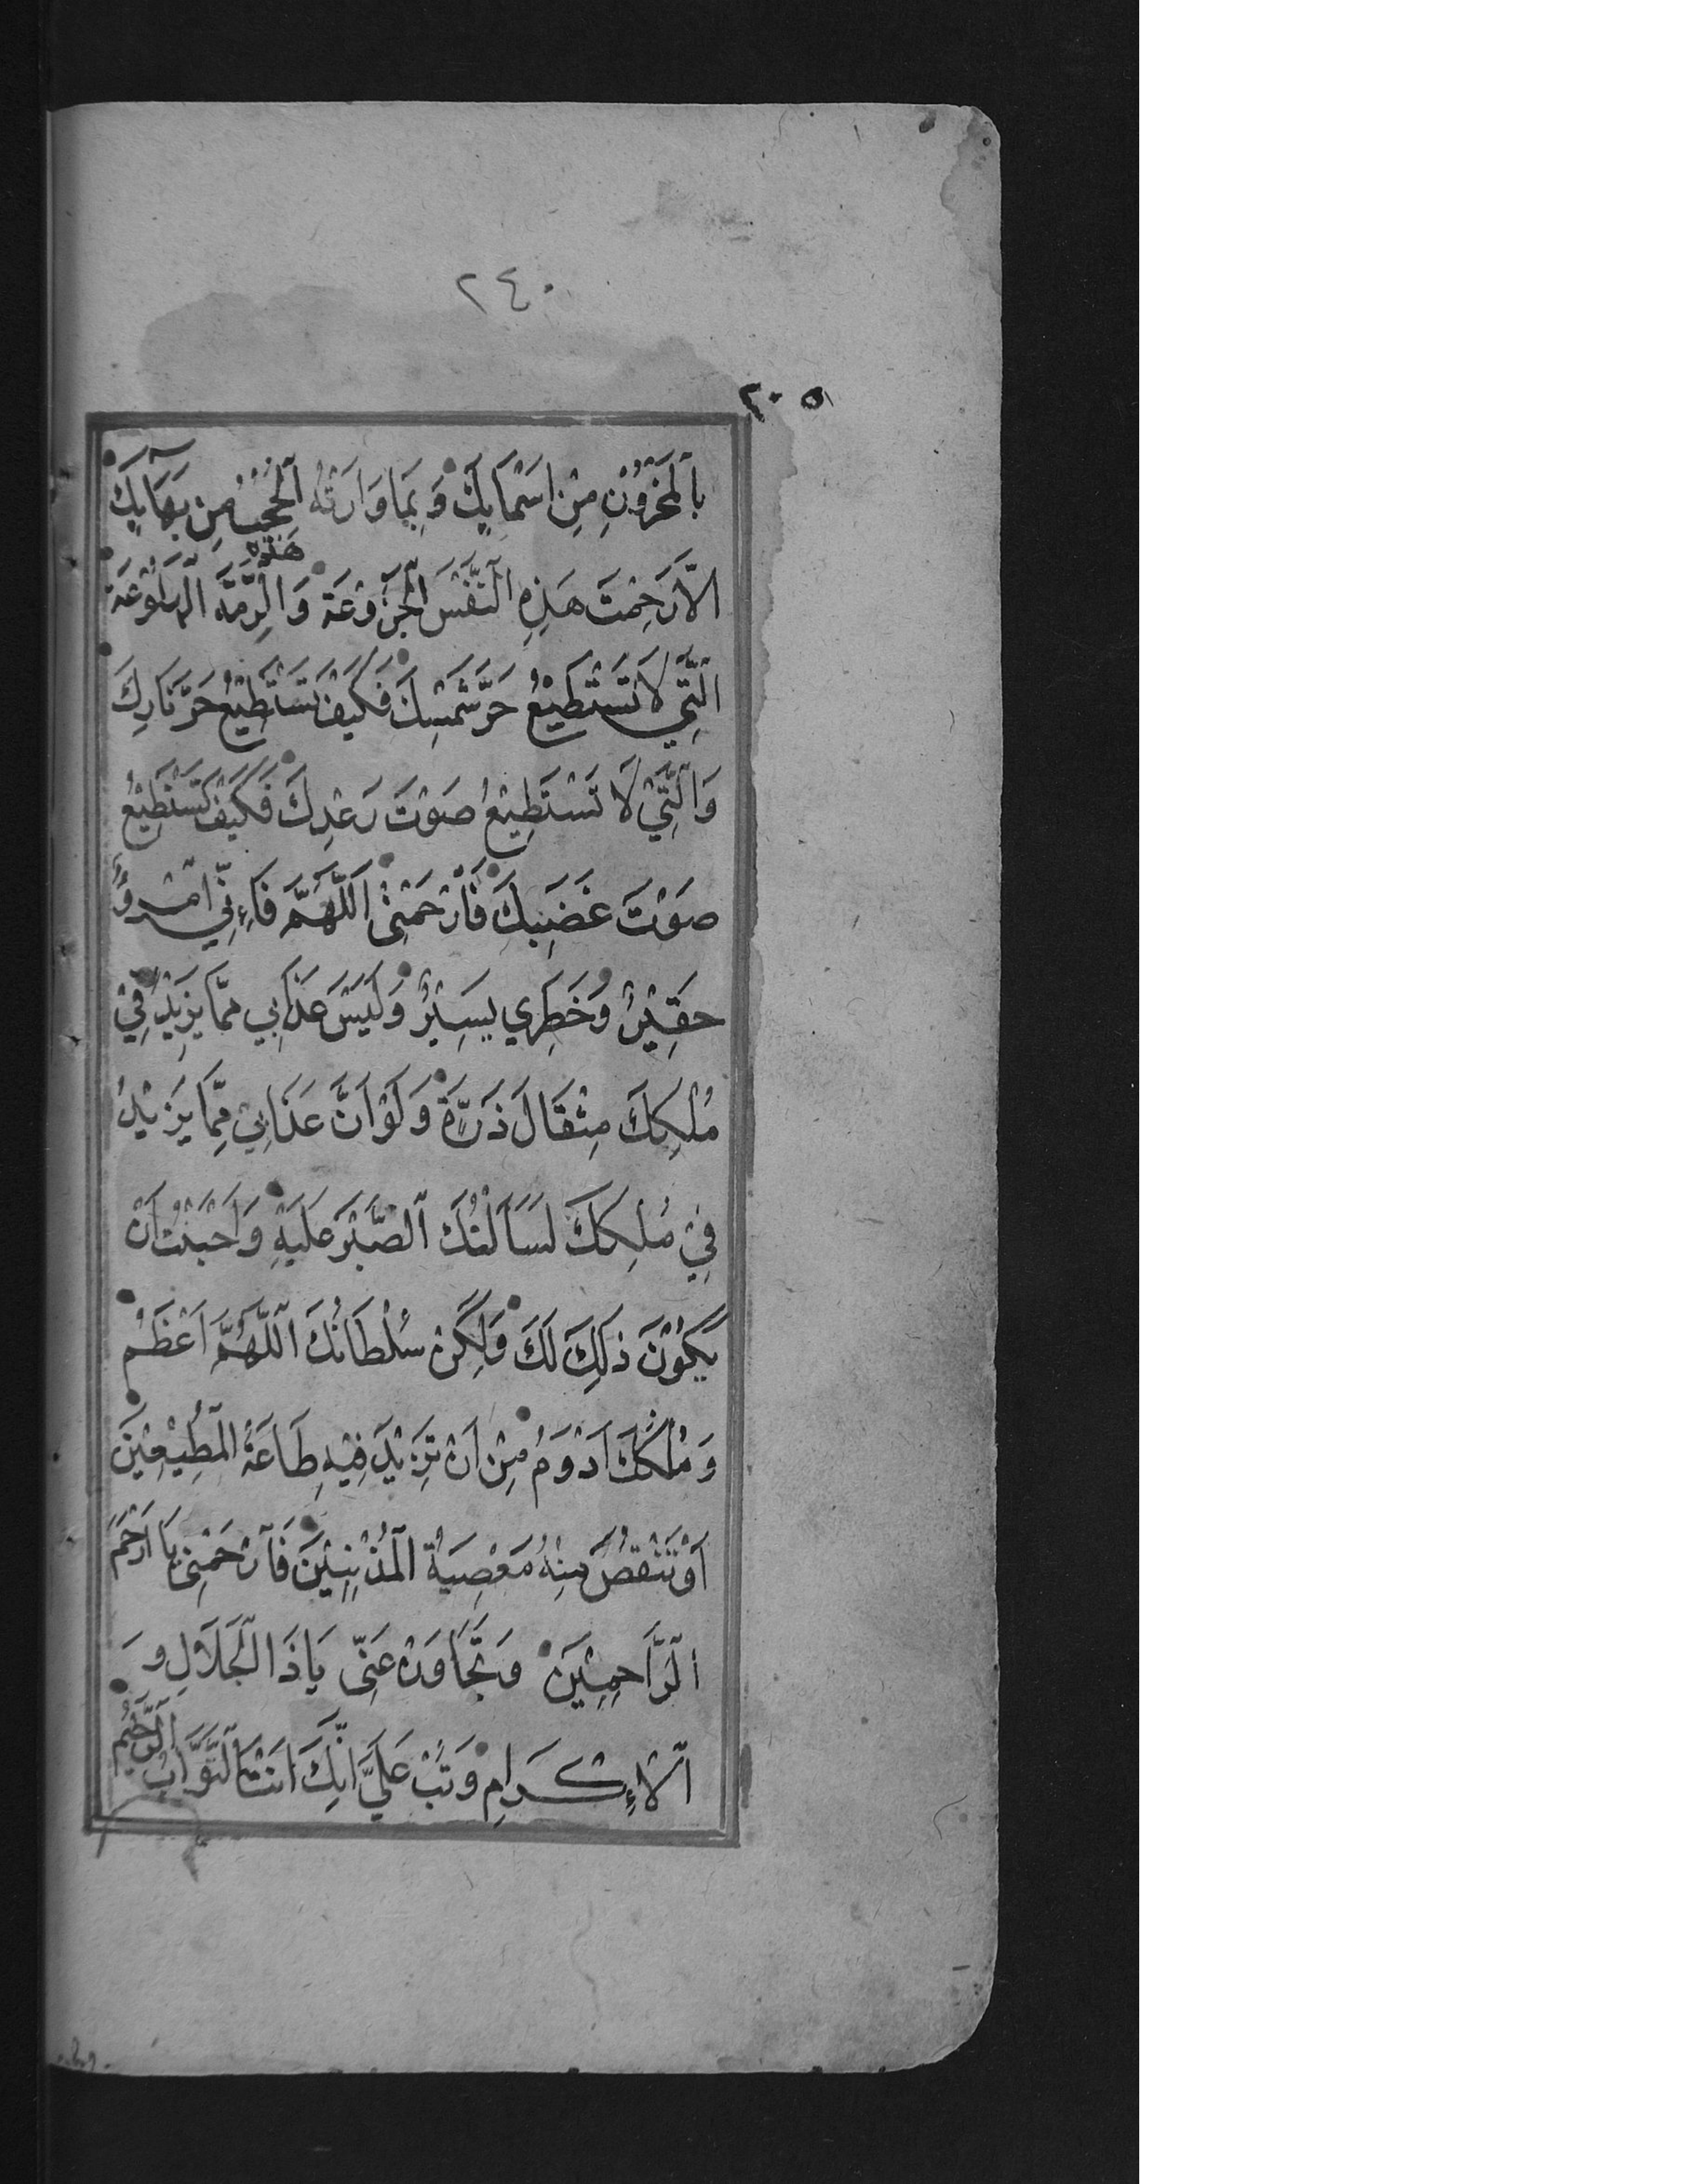 ٢٤٠
٢٠٥
بِٱلْمَخْزُوْنِ مِنْ اَسْمَايِٕكَ وَبِمَا وَارَتْهُ ٱلْحُجُبُ مِنْ بَهَايِٕكَ
اِلَّا رَحِمْتَ هَذِهِ ٱلنَّفْسَ ٱلْجَزُوْعَةَ وَهَذِهِ ٱلرِّمَّةَ ٱلْهَلُوْعَةَ
الَّتِي لَا تَسْتَطِيْعُ حَرَّ شَمْسِكَ فَكَيْفَ تَسْتَطِيْعُ حَرَّ نَارِكَ
وَالَّتِيْ لَا تَسْتَطِيْعُ صَوْتَ رَعْدِكَ فَكَيْفَ تَسْتَطِيْعُ
صَوْتَ غَضَبِكَ فَٱرْحَمْنِيْ اَللَّهُمَّ فَاِنِّي امْرُؤٌ
حَقِيْرٌ وَخَطَرِي يَسِيْرٌ وَلَيْسَ عَذَابِي مِمَّا يَزِيْدُ فِيْ
مُلْكِكَ مِثْقَالَ ذَرَّةٍ وَلَوْ اَنَّ عَذَابِيْ مِمَّا يَزِيْدُ
فِيْ مُلْكِكَ لَسَاَلْتُكَ ٱلصَّبْرَ عَلَيْهِ وَاَحْبَبْتُ اَنْ
يَكُوْنَ ذَلِكَ لَكَ وَلَكِنْ سُلْطَانُكَ اَللَّهُمَّ اَعْظَمُ
وَمُلْكُكَ اَدْوَمُ مِنْ اَنْ تَزِيْدَ فِيْهِ طَاعَةُ الْمُطِيْعِيْنَ
اَوْ تَنْقُصَ مِنْهُ مَعْصِيَةُ ٱلْمُذْنِبِيْنَ فَٱرْحَمْنِيْ يَا اَرْحَمَ
ٱلرَّاحِمِيْنَ وَتَجَاوَزْ عَنِّي يَا ذَا ٱلْجَلَالِ وَ
ٱلْاِكْرَامِ وَتُبْ عَلَيَّ اِنَّكَ اَنْتَ ٱلتَّوَّابُ ٱلرَّحِيْمُ